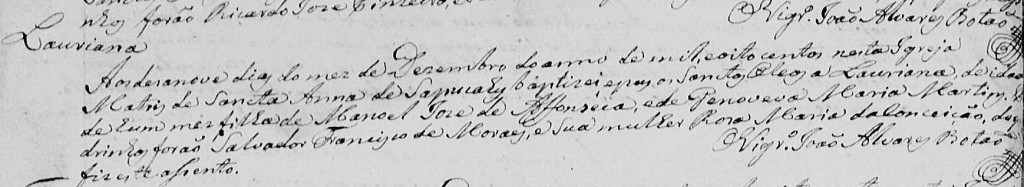 nhos forão Ricardo Joze Pinheiro, e
Vigr.º João Alvares Botão
Lauriana
Aos desanove dias do mez de Dezembro do anno de mil, e oito centos nesta Igreja
Matris de Sancta Anna de Sapucahy baptizei, e pus os Sanctos Oleos a Lauriana, de idade
de hum mez filha de Manoel Joze de Affonseca, e de Genoveva Maria Martins.
drinhos forão Salvador Francisco de Moraes, e sua mulher Roza Maria da Conceição, de q
fiz este assento.
Vigr.º João Alvares Botão